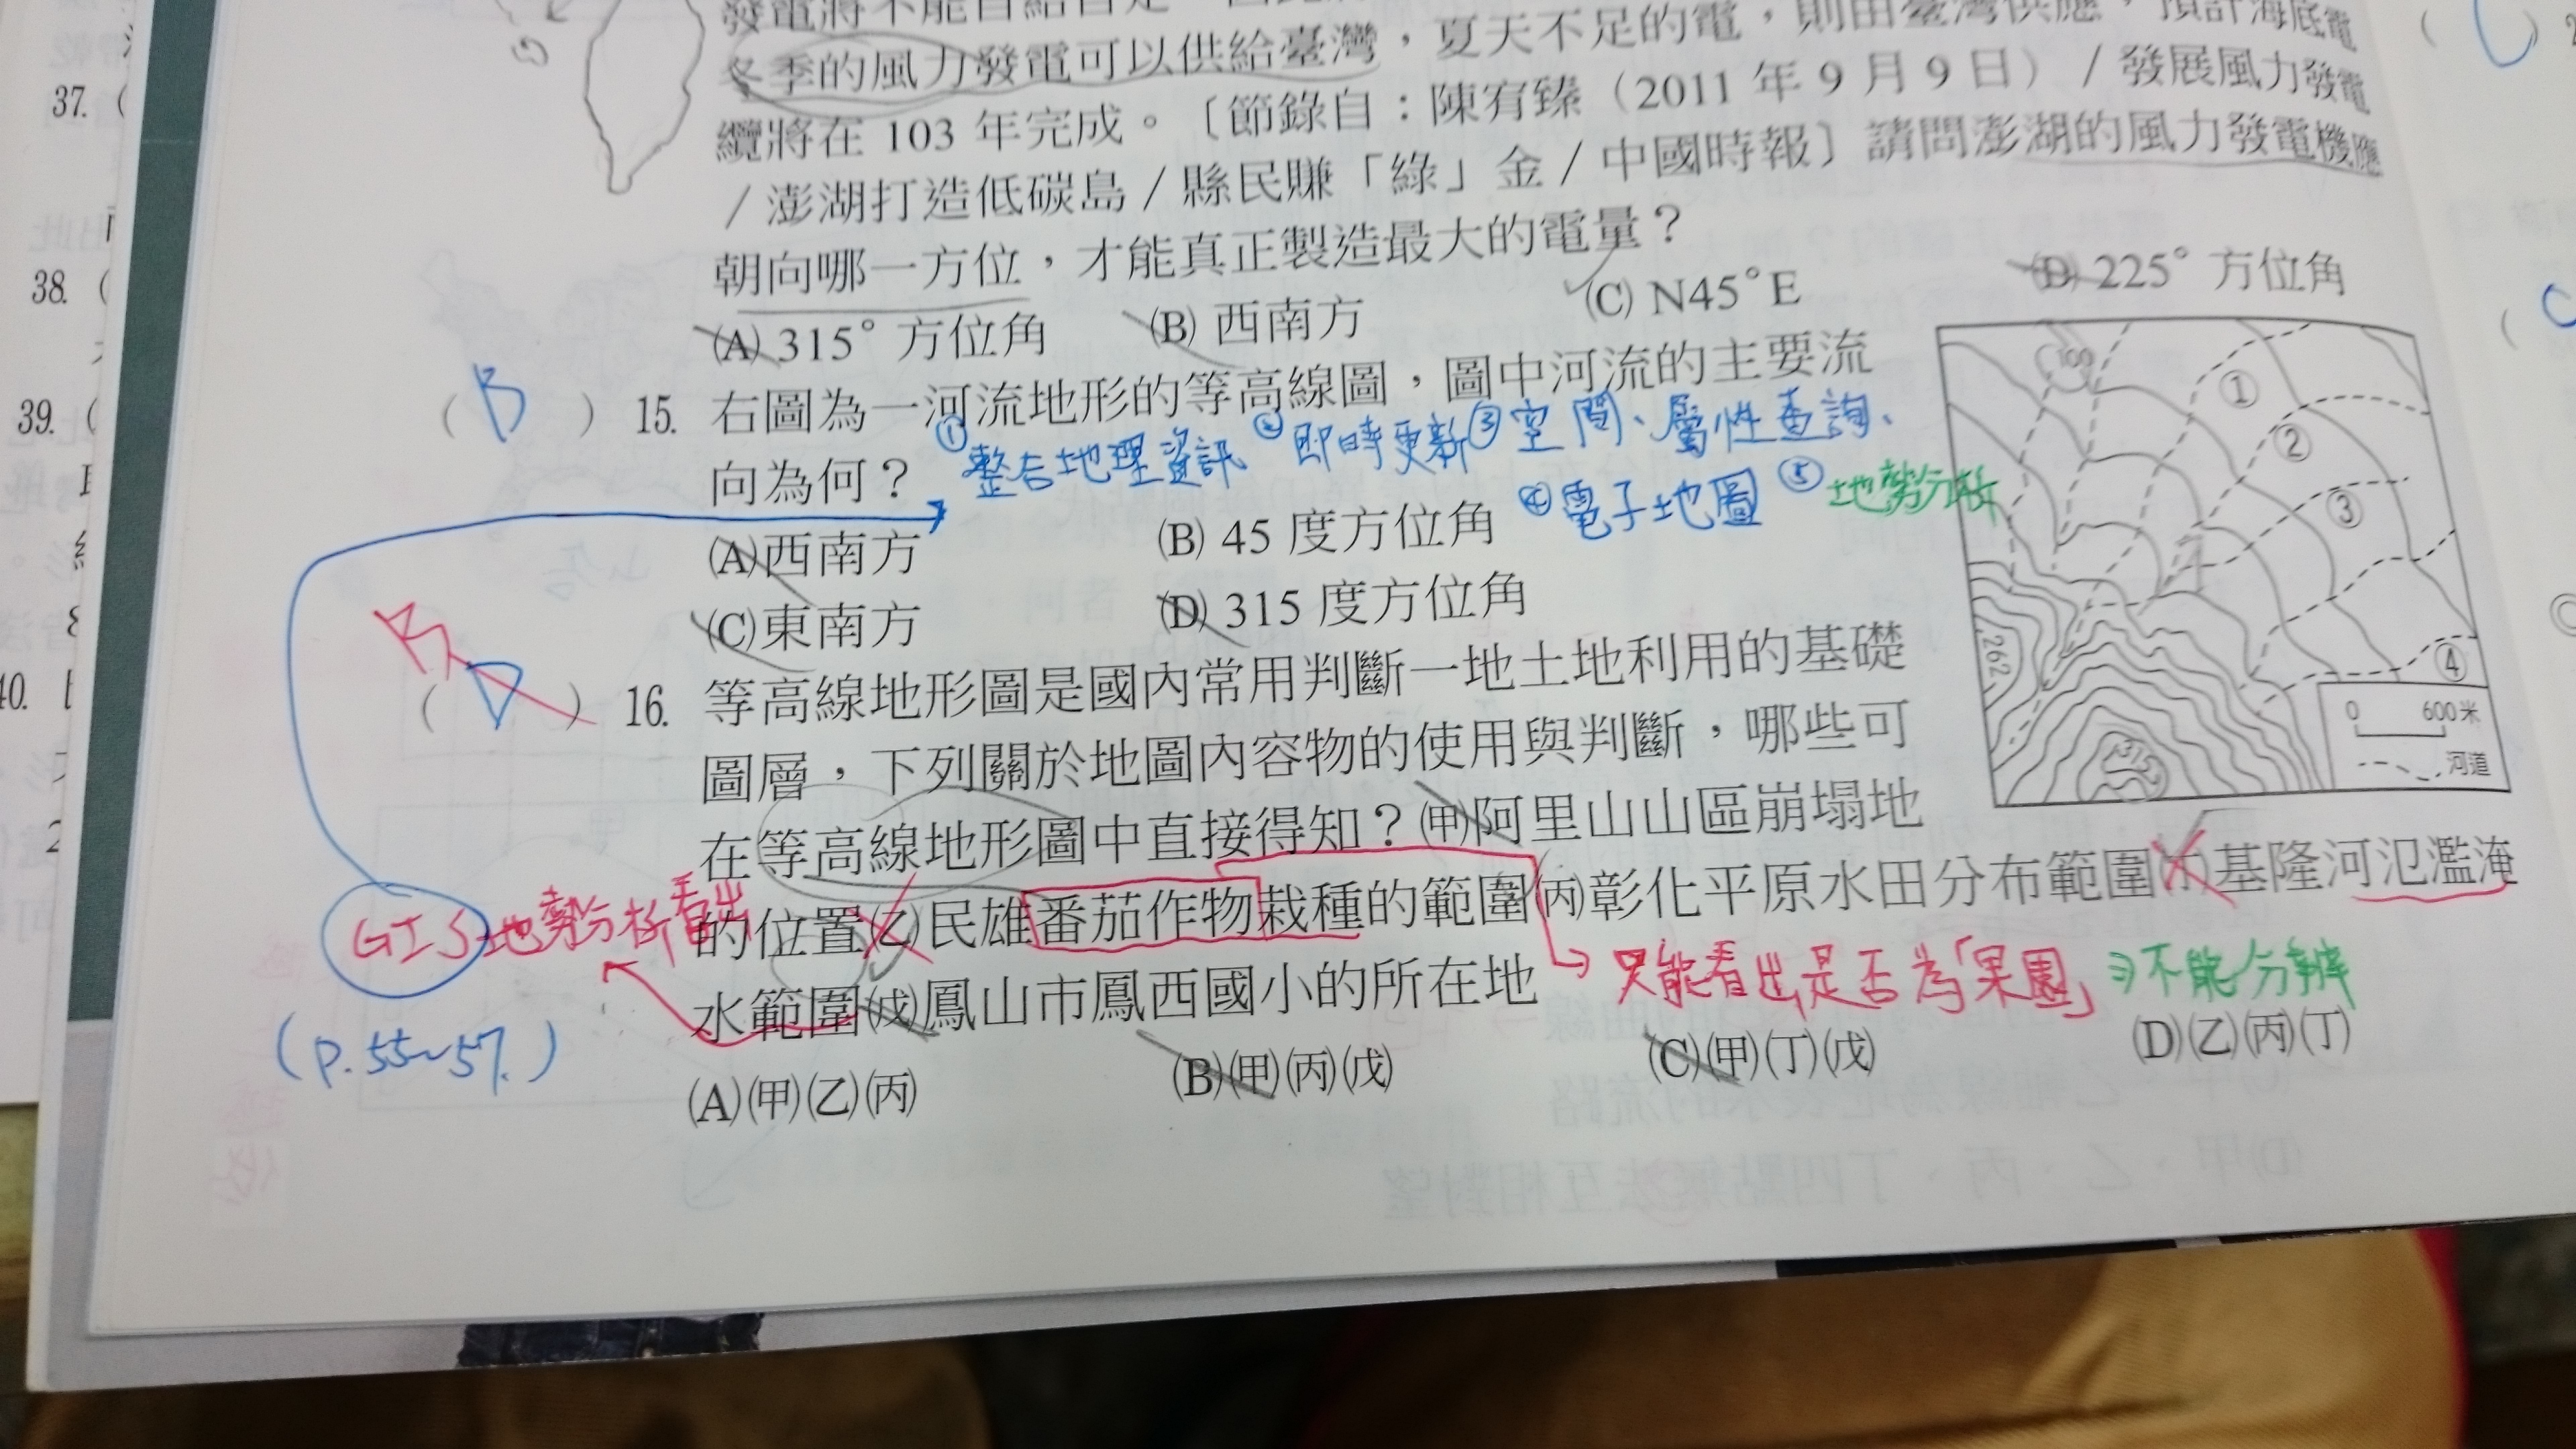 冬季的風力發電可以供給臺灣,夏天不足的電,則由臺灣供應,預計海底電
纜將在 103 年完成。〔節錄自:陳宥臻(2011 年 9 月 9 日)/發展風力發電
/澎湖打造低碳島/縣民賺「綠」金/中國時報〕請問澎湖的風力發電機應
朝向哪一方位,才能真正製造最大的電量?
(A) 315° 方位角 (B) 西南方 (C) N45°E (D) 225° 方位角
( B ) 15. 右圖為一河流地形的等高線圖,圖中河流的主要流
①整合地理資訊 ②即時更新 ③空間、屬性查詢、
向為何?
④電子地圖 ⑤地勢分析
(A)西南方 (B) 45 度方位角
(C)東南方 (D) 315 度方位角
100
①
②
③
④
262
0 600米
河道
B
( D ) 16. 等高線地形圖是國內常用判斷一地土地利用的基礎
圖層,下列關於地圖內容物的使用與判斷,哪些可
在等高線地形圖中直接得知?(甲)阿里山山區崩塌地
的位置(乙)民雄番茄作物栽種的範圍(丙)彰化平原水田分布範圍(丁)基隆河氾濫淹
GIS地勢分析看出
水範圍(戊)鳳山市鳳西國小的所在地
只能看出是否為「果園」
不能分辨
(p.55~57.)
(A)(甲)(乙)(丙) (B)(甲)(丙)(戊) (C)(甲)(丁)(戊) (D)(乙)(丙)(丁)
37. (
38. (
39. (
40.